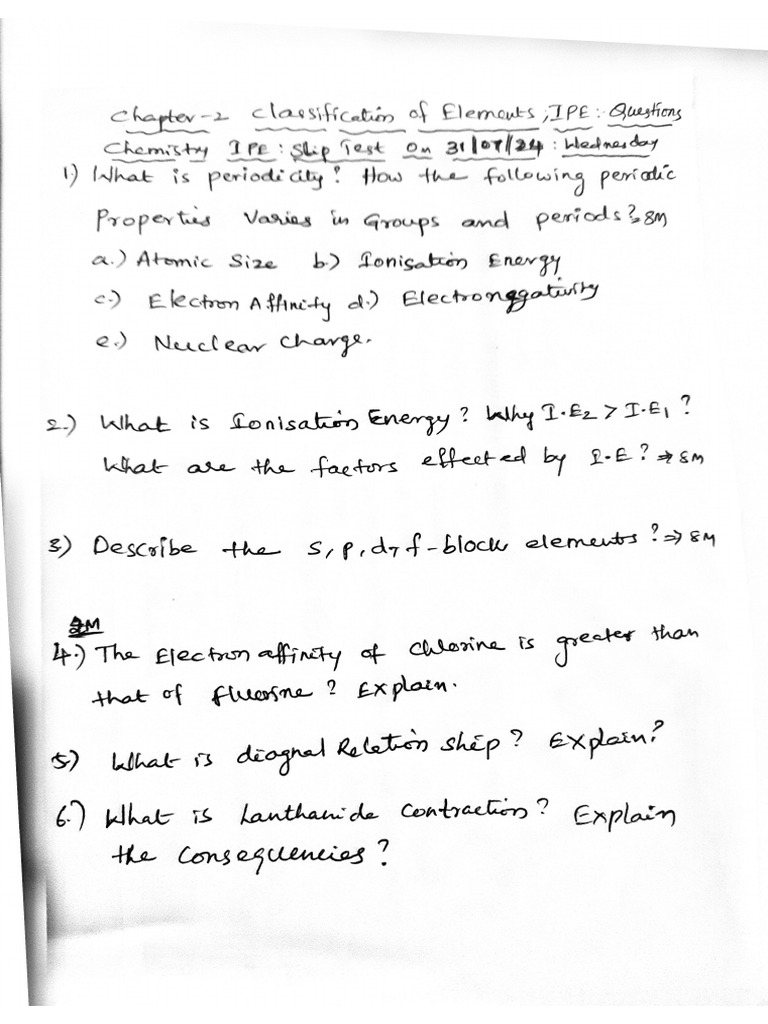 Chapter-2 Classification of Elements, IPE: Questions
Chemistry IPE: Slip Test On 31/07/24: Wednesday
1) What is periodicity? How the following periodic
Properties Varies in Groups and periods? 8M
a.) Atomic Size b.) Ionisation Energy
c.) Electron Affinity d.) Electronggativity
e.) Nuclear Charge.
2.) What is Ionisation Energy? Why I.E2 > I.E1?
What are the factors effected by I.E? ⇒ 8M
3) Describe the s, p, d, f-block elements? ⇒ 8M
2M
4.) The Electron affinity of chlorine is greater than
that of fluorine? Explain.
5) What is diognal Relation ship? Explain?
6.) What is Lanthanide contraction? Explain
the Consequencies?